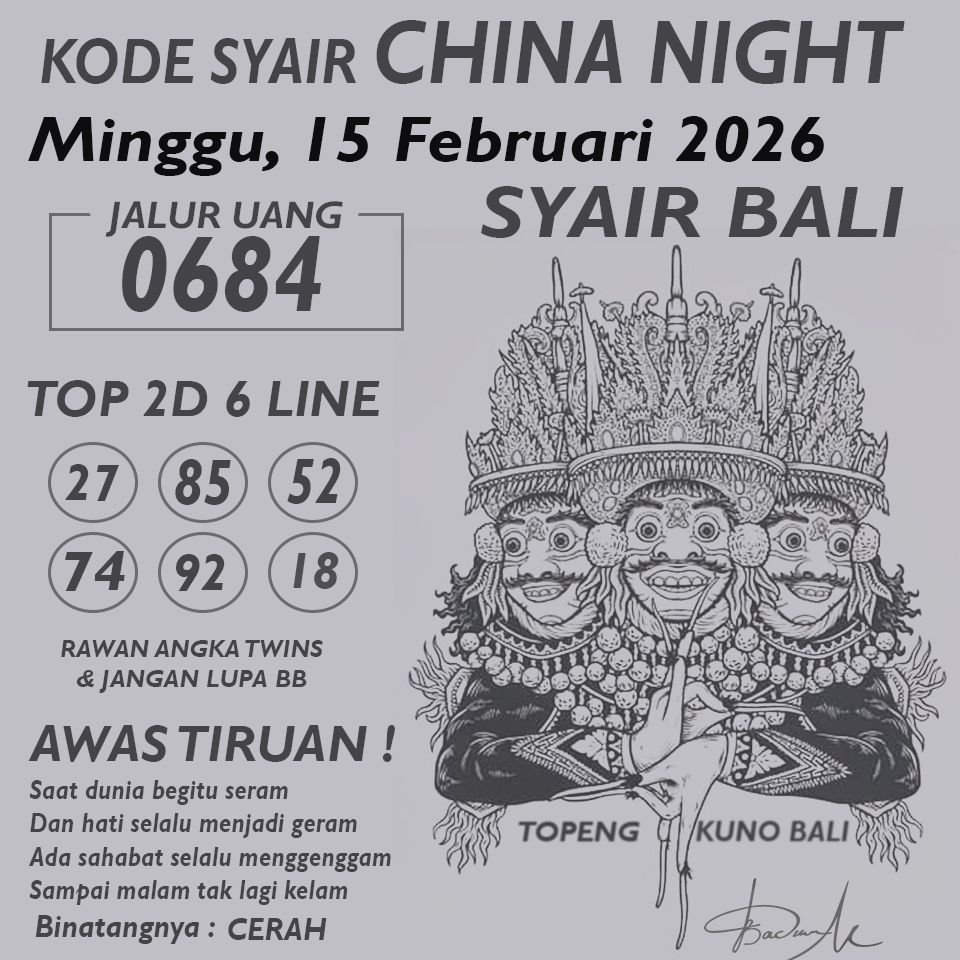 KODE SYAIR CHINA NIGHT
Minggu, 15 Februari 2026
SYAIR BALI
JALUR UANG
0684
TOP 2D 6 LINE
27 85 52
74 92 18
RAWAN ANGKA TWINS
& JANGAN LUPA BB
AWAS TIRUAN !
Saat dunia begitu seram
Dan hati selalu menjadi geram
Ada sahabat selalu menggenggam
Sampai malam tak lagi kelam
Binatangnya : CERAH
TOPENG KUNO BALI